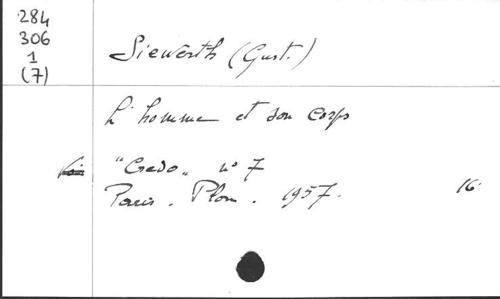 284
306
1
(7)
Siewerth (Gust.)
L'homme et son corps
"Credo" n° 7
Paris. Plon. 1957.
16